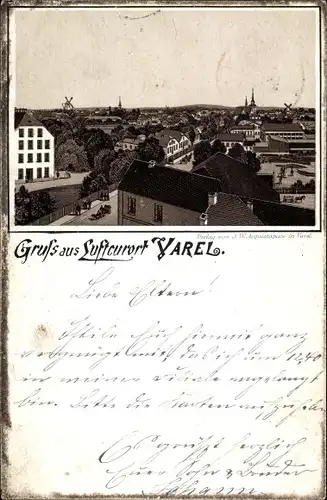 Verlag von J. W. Acquistapace in Varel
Gruß aus Luftcurort VAREL.
Liebe Eltern!
Theile Euch hiermit ganz
vergnügt mit das ich um 12,40
in meiner Filiale angelangt
bin. Bitte die Karten aufzuheben
Es grüßt herzlich
Euer Sohn u Bruder
Johann